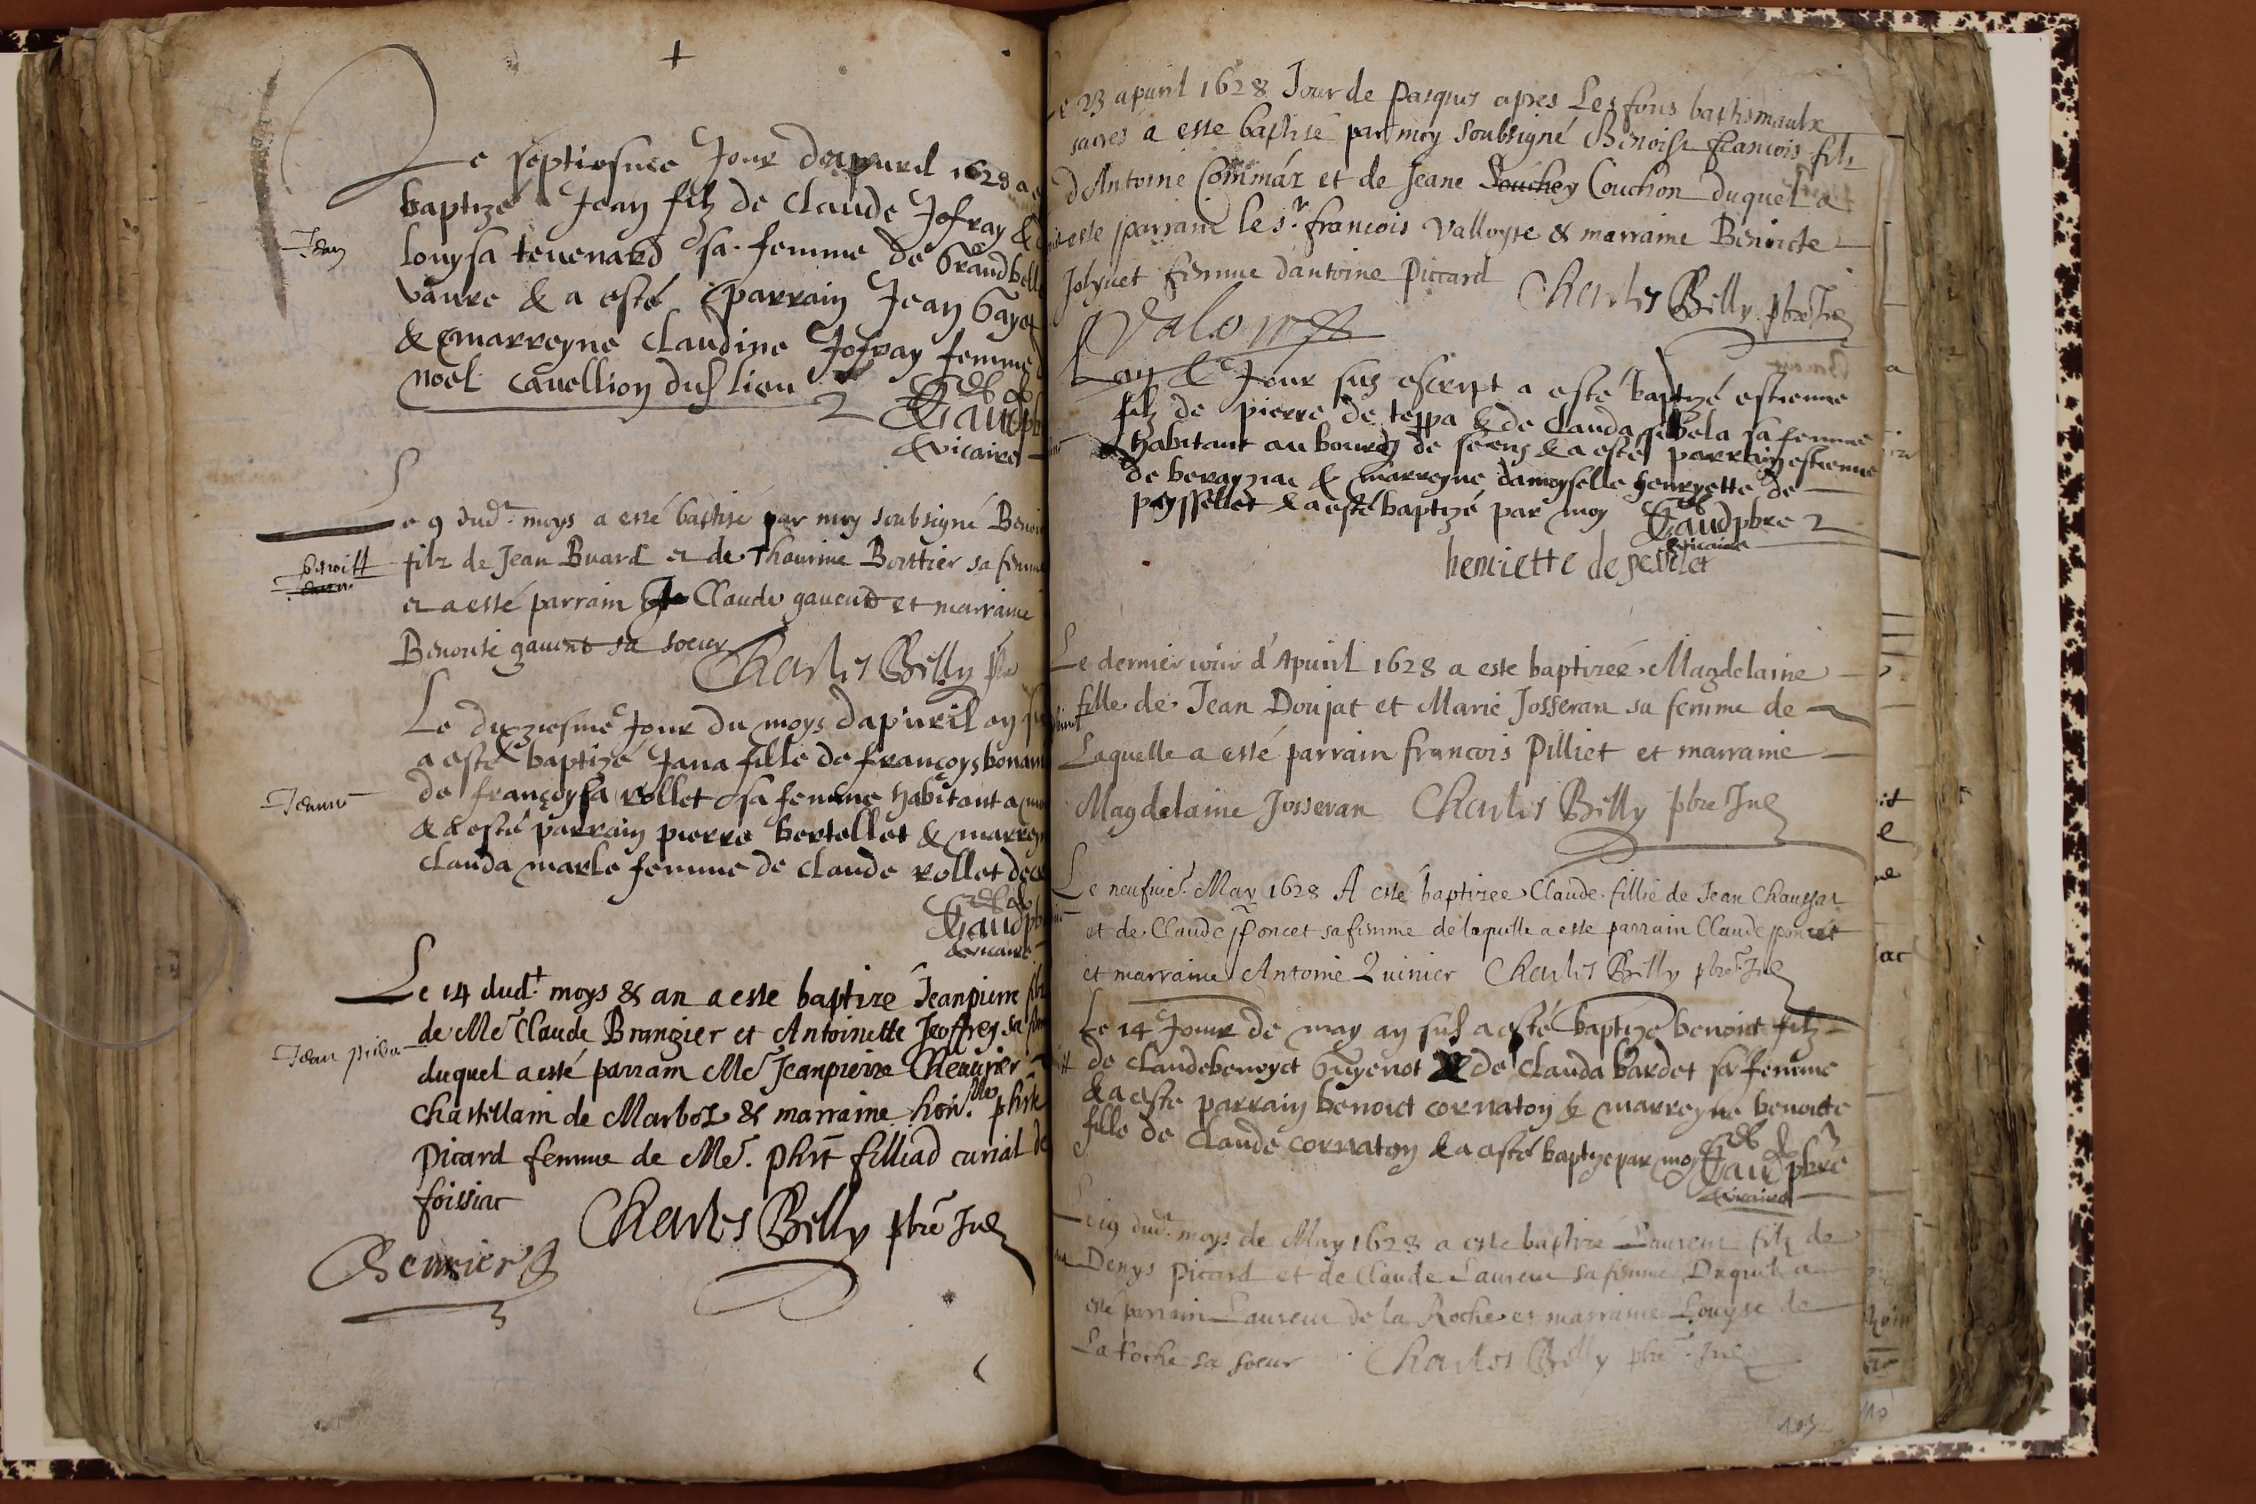 Le septiesme Jour dapvril 1628 a e
baptizé Jean filz de Claude Jofray &
Jean
louysa tevenard sa femme de Grandbell
vavre & a esté parrain Jean Gayet
& marreyne Claudine Jofray femme
noel cavellion dud lieu
Gaud pb
& vicaire
Le 9 dud.t moys a esté baptisé par moy soubsigné Benoi
benoist
filz de Jean Buard et de Thaurine Bottier sa femme
et a esté parrain Claude gavend et marraine
Benoiste gavend sa soeur Charles Billy pbr
Le dixziesme Jour du moys dapvril an su
a esté baptizé Jana fille de françoys bonam
Jeanne
de françoysa rollet sa femme habitant a
& a esté parrain pierre bertellet & marrey
Clauda marle femme de Claude rollet de
Gaud pb
& vicaire
Le 14 dud.t moys & an a este baptizé Jeanpierre filz
de Me Claude Brangier et Antoinette Jeoffrey sa fem
Jean pierre
duquel a esté parrain Me Jeanpierre Cheurier
Chastellain de Marboz & marraine hon.ble phte
Picard femme de Me. phrt filliad curial de
foissiat
Charles Billy pbre Jne
Cheurier
Le 23 apvril 1628 Jour de Pasques apres Les fons baptismaulx
sacres a esté baptisé par moy soubsigné Benoist francois filz
d'Antoine Commár et de Jeane Souchey Couchon duquel a
este parrain le s.r francois Valloyse & marraine Benoicte
Jolyuet femme dantoine Piccard Charles Billy pbre Jne
Valoyse
Lan & Jour sus escript a esté baptizé estienne
filz de pierre de teppa & de Clauda sebela sa femme
habitant au bourg de & a esté parrain estienne
de verayziac & marreyne damoyselle henryette de
peyssellet & a esté baptizé par moy Gaud pbre
& vicaire
henriette de pesselet
Le dernier iour d'Apvril 1628 a este baptizée Magdelaine
fille de Jean Doujat et Marie Josseran sa femme de
Laquelle a esté parrain francois Pilliet et marraine
Magdelaine Josseran Charles Billy pbre Jne
Le neufuie. May 1628 A esté baptizee Claude fillie de Jean Chaussat
et de Claude Poncet sa femme de laquelle a este parrain Claude poncet
et marraine Antoine Quinier Charles Billy pbre Jne
Le 14 Jour de may an sus a esté baptizé benoict filz
de Claudebenoyct Guyenot & de Clauda bardet sa femme
& a esté parrain benoict cornaton & marreyne benoicte
fille de Claude cornaton & a esté baptize par moy Gaud pbre
& vicaire
Le 19 dud. moys de May 1628 a este baptizé Laurent filz de
Denys Picard et de Claude Laurent sa femme Duquel a
esté parrain Laurent de la Roche et marraine Louyse de
La roche sa soeur Charles Billy pbre Jne